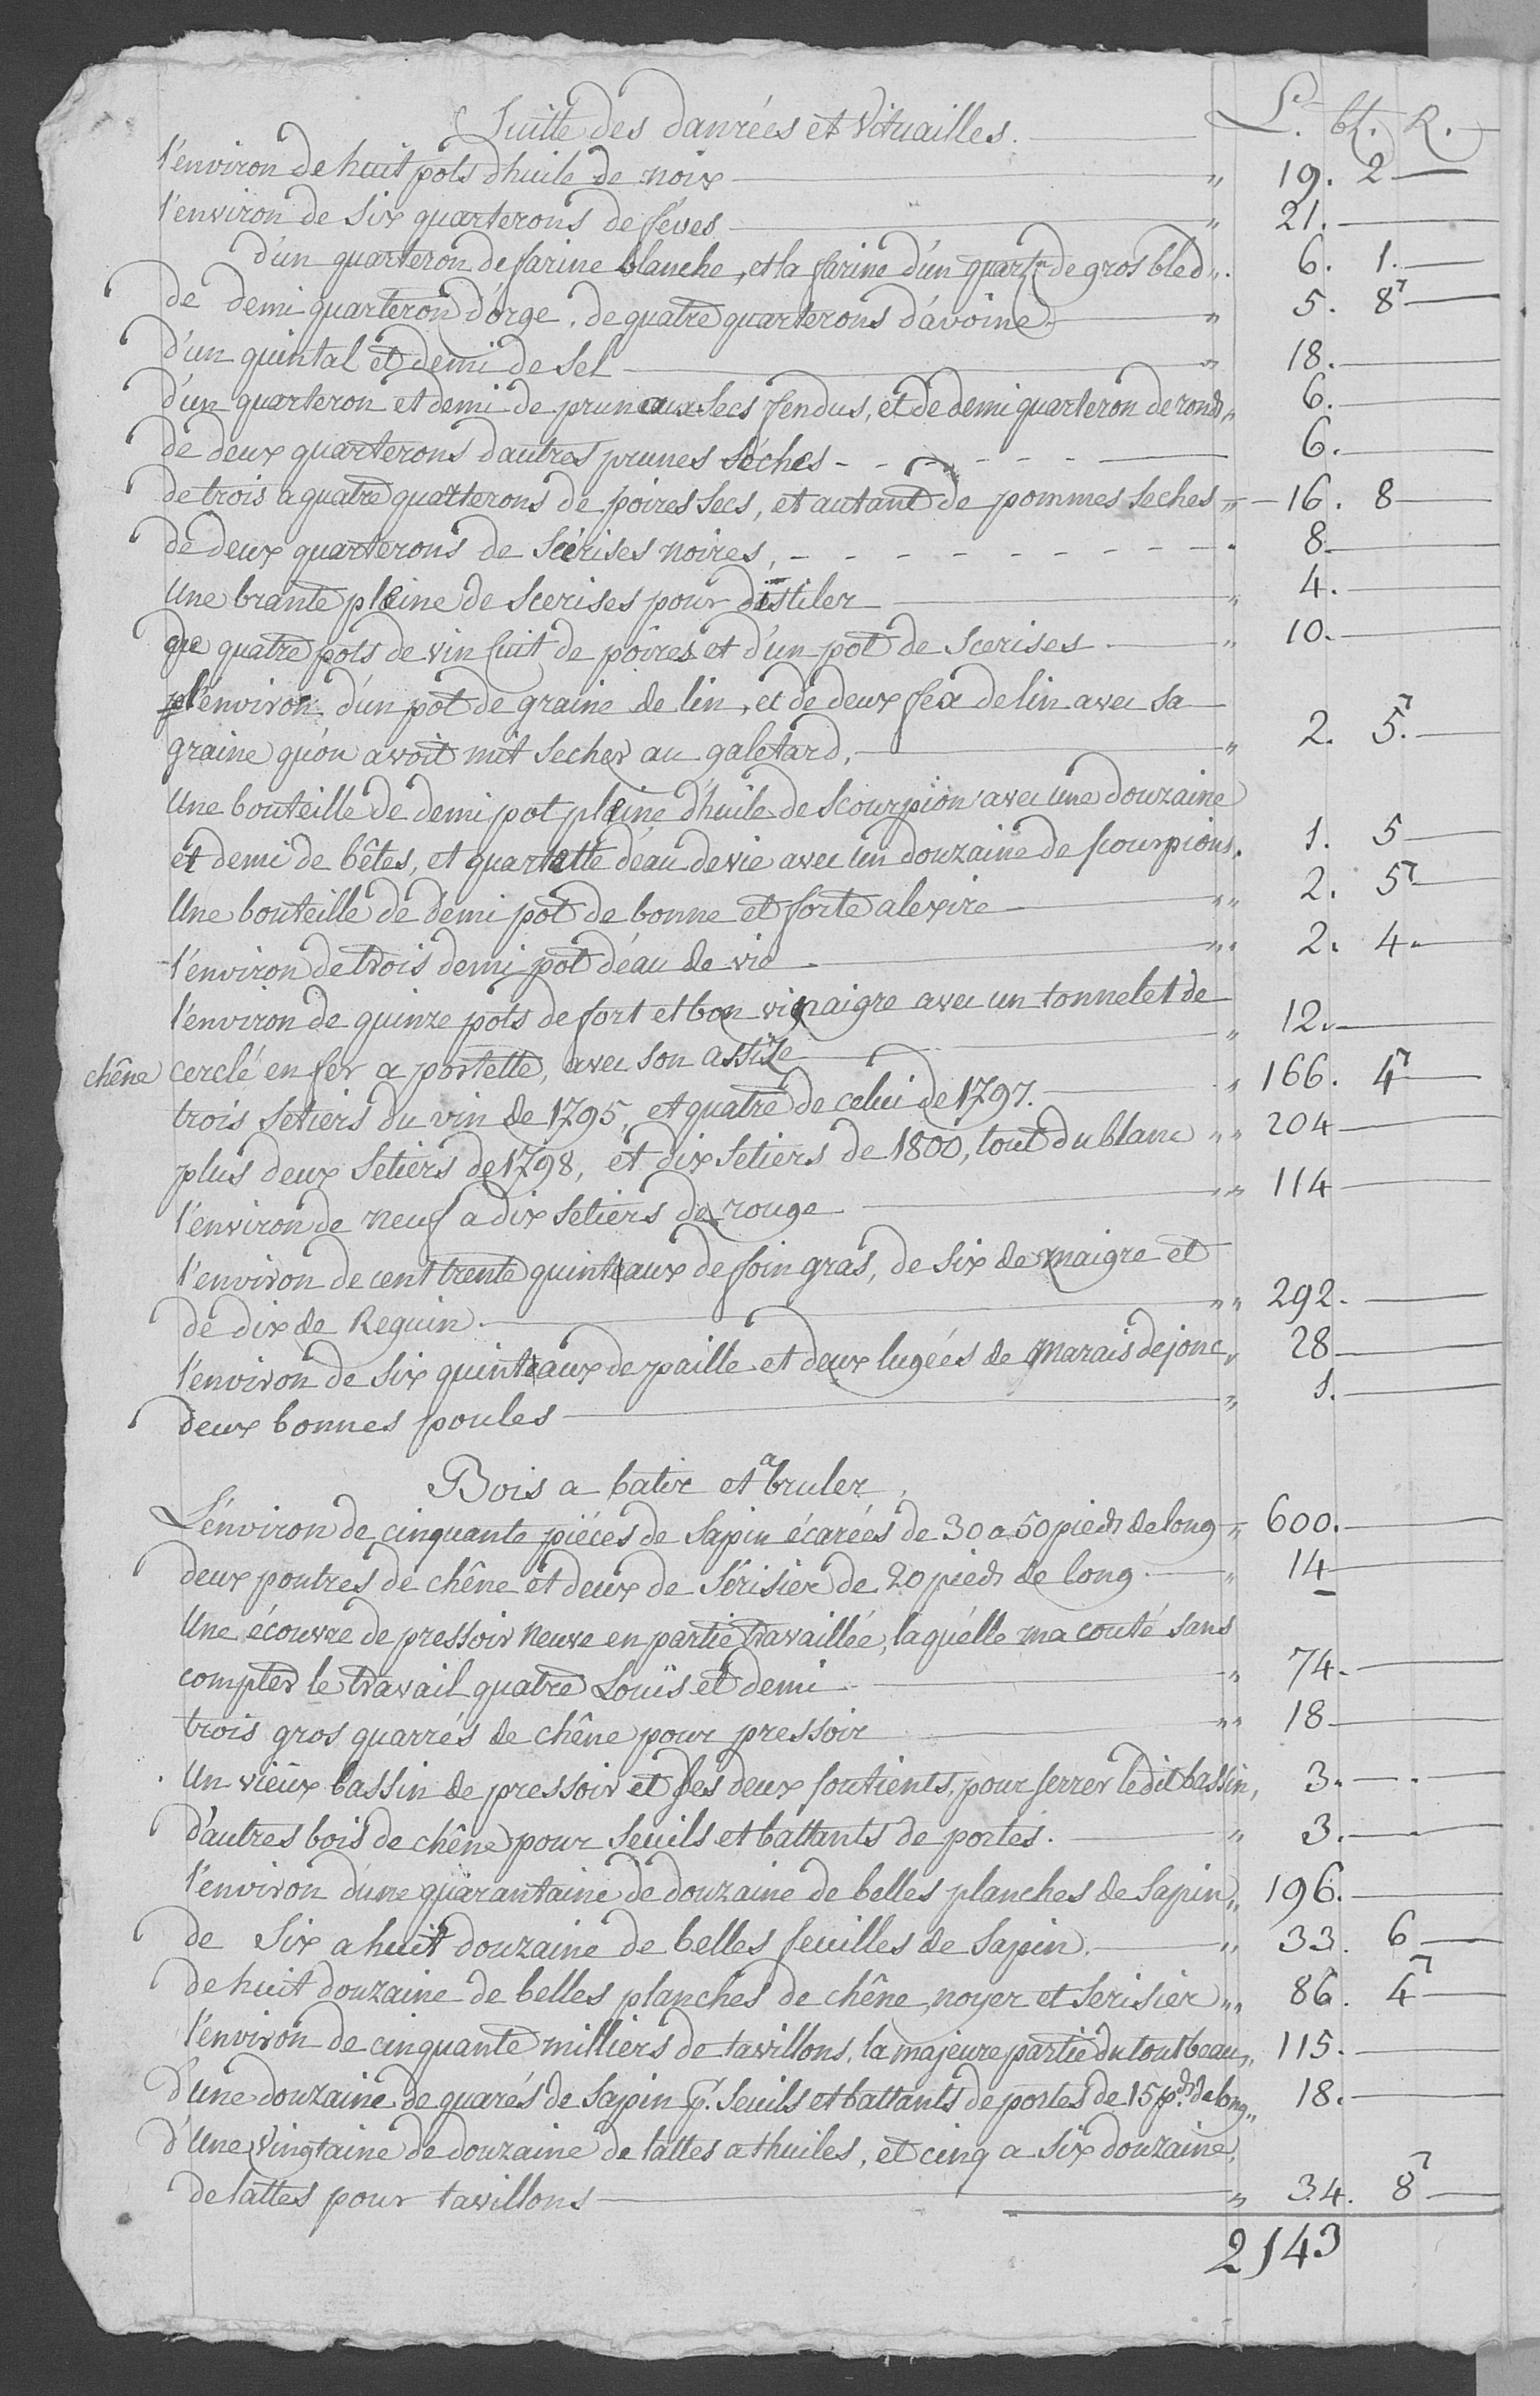 Suitte des danrées et Vituailles. L. bt. R.
l'environ de huit pots d'huile de noix " 19. 2
l'environ de six quarterons de féves " 21.
d'un quarteron de farine blanche, et la farine d'un quartn de gros bled ". 6. 1.
de demi quarteron d'orge, de quatre quarterons d'avoine " 5. 8
d'un quintal et demi de sel " 18.
d'un quarteron et demi de pruneaux secs fendus, et de demi quarteron de ronds " 6.
de deux quarterons d'autres prunes séches 6.
de trois a quatre quarterons de poires secs, et autant de pommes seches " 16. 8
de deux quarterons de Scérises noires, 8
Une brante pleine de Scerises pour distiler " 4.
de quatre pots de vin cuit de poires et d'un pot de Scerises " 10.
l'environ d'un pot de graine de lin, et de deux fex de lin avec sa
graine qu'on avoit mit secher au galetard, " 2. 5.
Une bouteille de demi pot pleine d'huile de Scourpion avec une douzaine
et demi de bêtes, et quartette d'éau de vie avec un douzaine de scourpions. 1. 5
Une bouteille de demi pot de bonne et forte alexire " 2. 5
l'environ de trois demi pot d'éau de vie " 2. 4.
l'environ de quinze pots de fort et bon vinaigre avec un tonnelet de
chêne cerclé en fer a portette, avec son assize " 12.
trois setiers du vin de 1795, et quatre de celui de 1797. " 166. 4
plus deux Setiers de 1798, et dix Setiers de 1800, tout du blanc " 204
l'environ de neuf a dix setiers de rouge " 114
l'environ de cent trente quinteaux de foin gras, de six de maigre et
de dix de Reguin. " 292.
l'environ de six quinteaux de paille et deux lugées de Marais de jonc " 28
deux bonnes poules " 1.
Bois a batir et a bruler.
L'énviron de cinquante piéces de Sapin écarées de 30 a 50 pieds de long " 600.
deux poutres de chêne et deux de Sérisier de 20 pieds de long " 14
Une écouvre de pressoir neuve en partie travaillée, laquélle ma couté sans
compter le travail quatre Louïs et demi " 74.
trois gros quarrés de chêne pour pressoir " 18
Un vieux bassin de pressoir et ses deux soutients, pour serrer ledit bassin, 3.
d'autres bois de chêne pour seuils et battants de portes. " 3.
l'environ d'une quarantaine de douzaine de belles planches de Sapin " 196.
de Six a huit douzaine de belles feuilles de Sapin. " 33. 6
de huit douzaine de belles planches de chêne, noyer et Serisier " 86. 4
l'environ de cinquante milliers de tavillons, la majeure partie du tout beau " 115.
d'une douzaine de quarés de Sapin p. Seuils et battants de portes de 15 pds de long " 18.
d'Une vingtaine de douzaine de lattes a thuiles, et cinq a six douzaine,
de lattes pour tavillons " 34. 8
2143